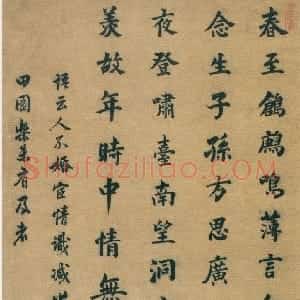 春至鶬鶊鳴薄言
念生子孫方思廣
夜登嘯臺南望洞
羨故年時中情無
語云人不婚宦情識減
田園樂集有及者
Shufaziliao.com